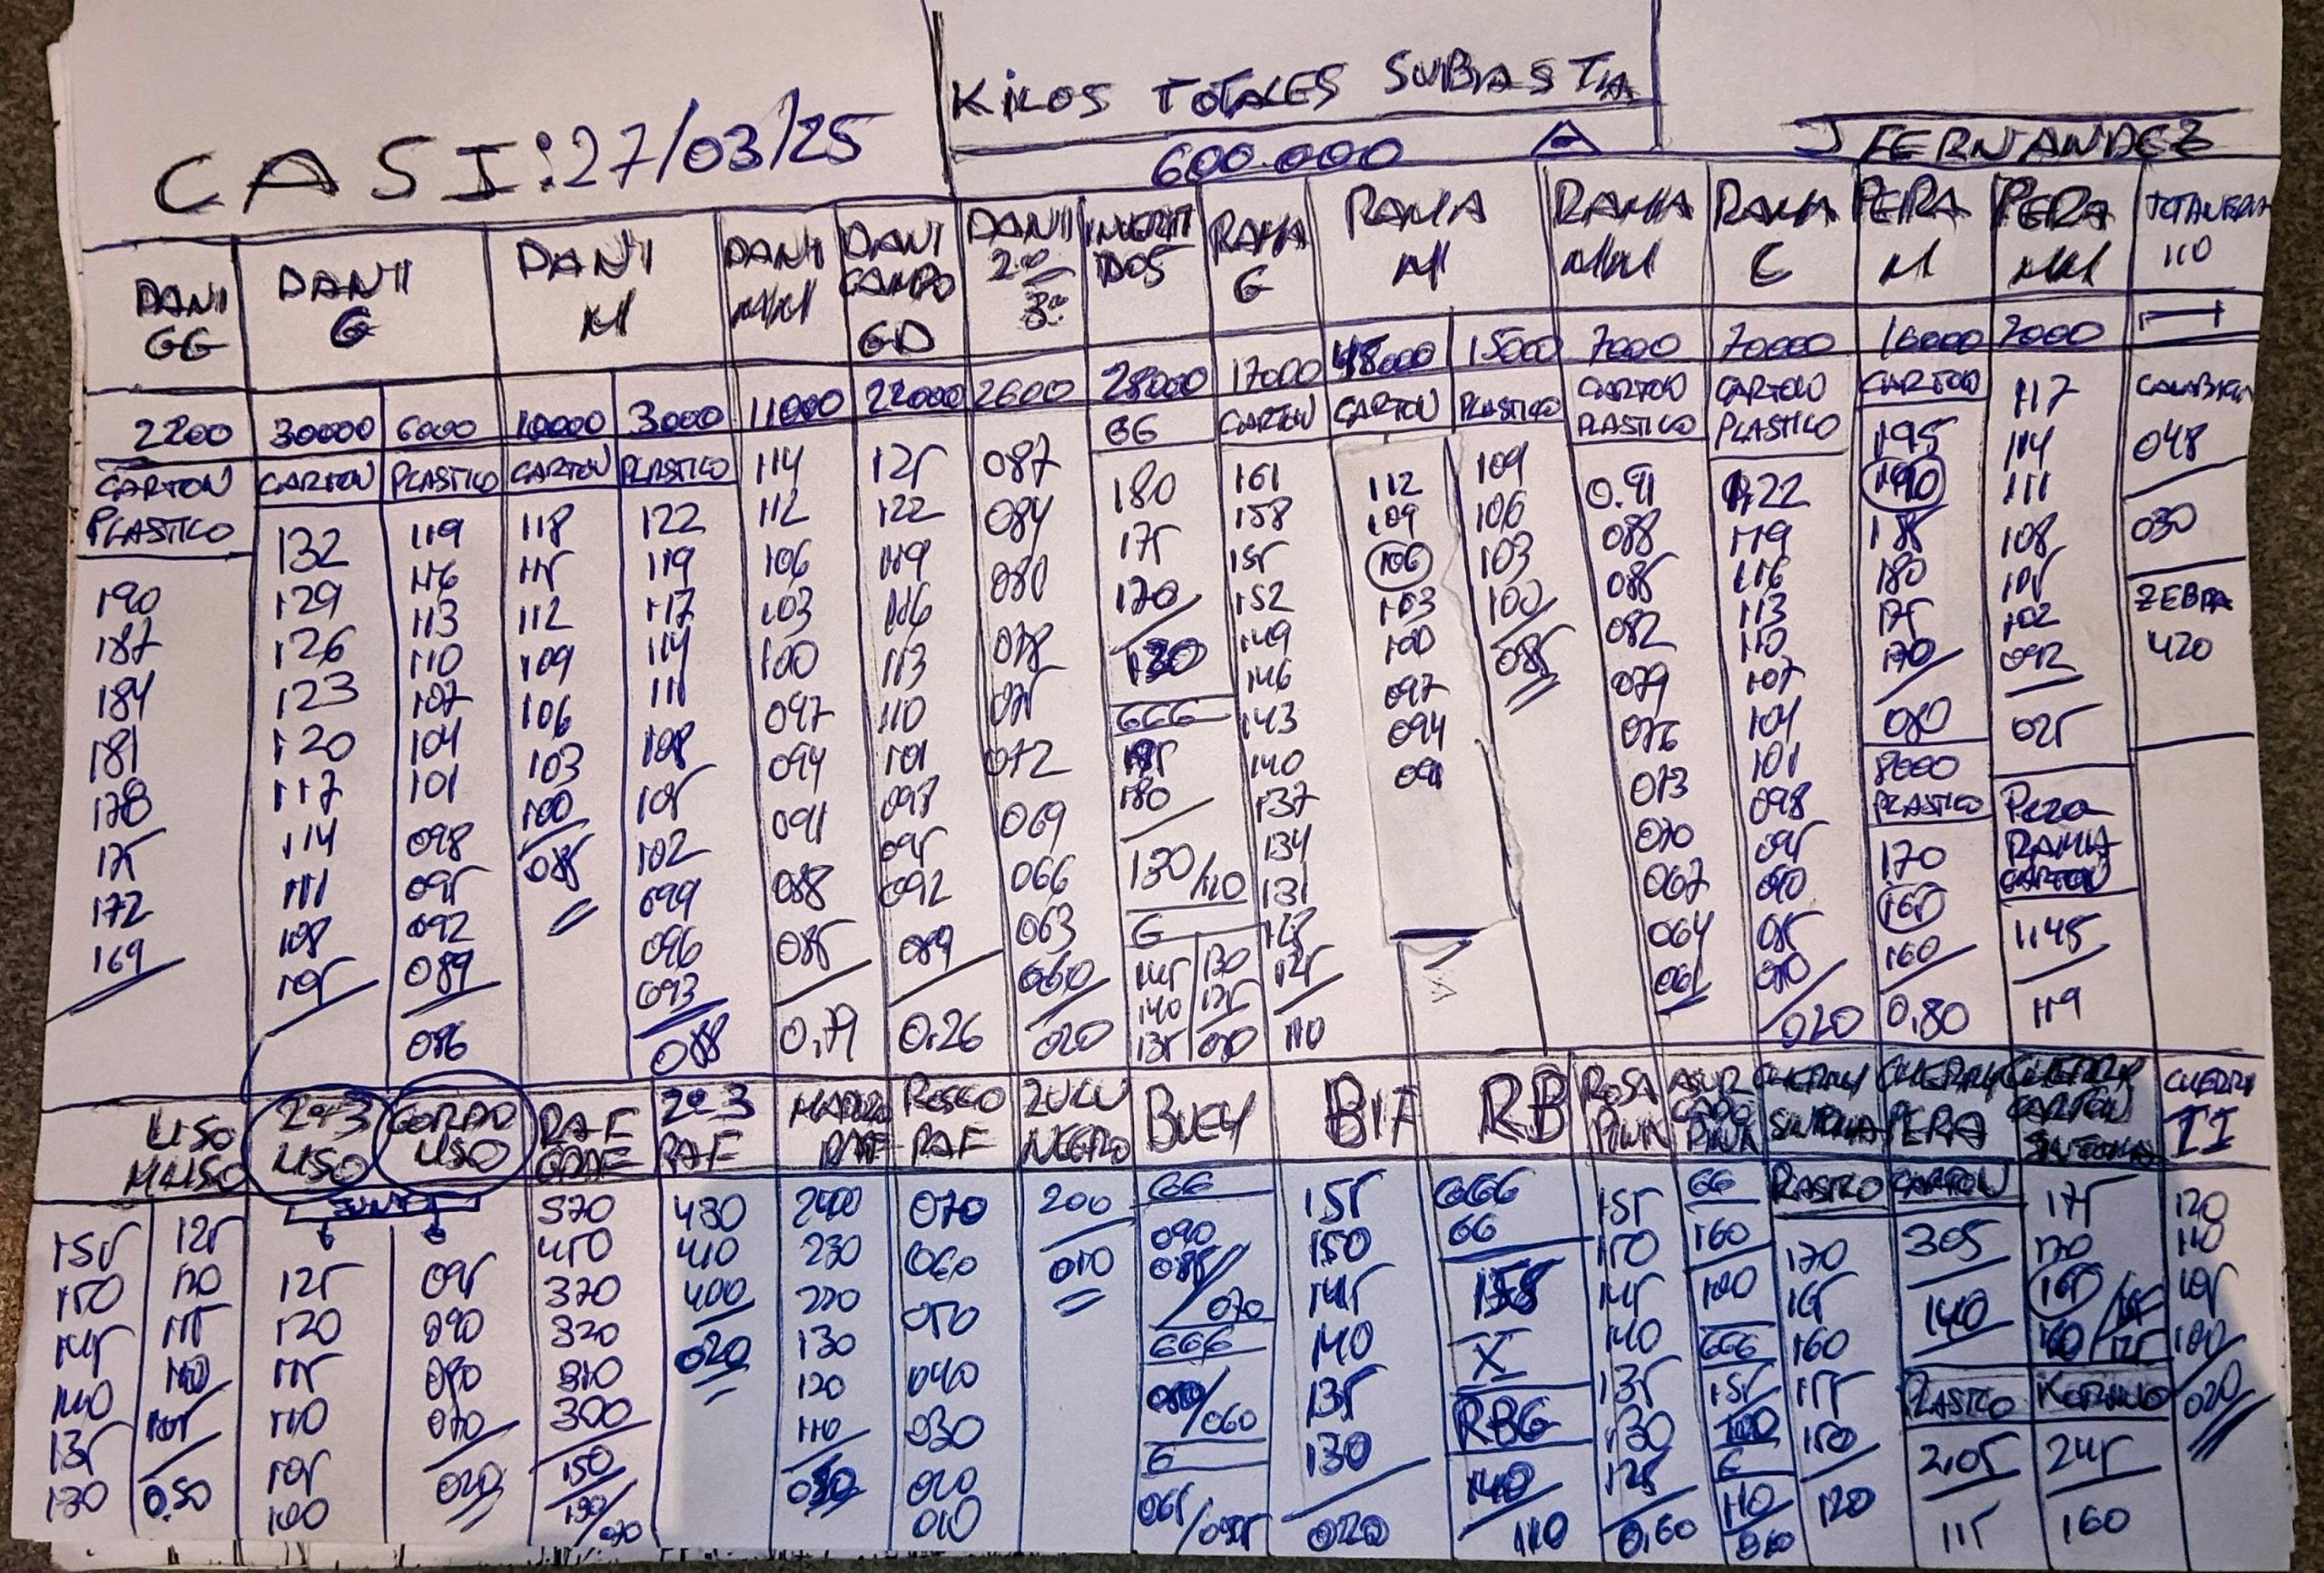 KILOS TOTALES SUBASTA
CASI: 27/03/25
600.000
J FERNANDEZ
DANI GG
2200
CARTON
PLASTICO
190
187
184
181
178
175
172
169
DANI G
30000
CARTON
132
129
126
123
120
117
114
111
108
105
6000
PLASTICO
119
116
113
110
107
104
101
098
095
092
089
086
DANI M
10000
CARTON
118
115
112
109
106
103
100
085
3000
PLASTICO
122
119
117
114
111
108
105
102
099
096
093
088
DANI MM
11000
114
112
106
103
100
097
094
091
088
085
0,79
DANI CAMPO GD
22000
125
122
119
116
113
110
101
098
095
092
089
0.26
DANI 2ª 3ª
2600
087
084
080
078
075
072
069
066
063
060
020
INVERTIDOS
28000
GG
180
175
170
130
GGG
185
180
130/110
G
145 130
140 125
135 090
RAMA G
17000
CARTON
161
158
155
152
149
146
143
140
137
134
131
125
110
RAMA M
48000
CARTON
112
109
106
103
100
097
094
091
15000
PLASTICO
109
106
103
100
085
RAMA MM
7000
CARTON
PLASTICO
0.91
088
085
082
079
076
073
070
067
064
061
RAMA C
70000
CARTON
PLASTICO
1,22
119
116
113
110
107
104
101
098
095
090
085
080
020
PERA M
16000
CARTON
195
190
188
180
175
170
080
8000
PLASTICO
170
165
160
0,80
PERA MM
7000
117
114
111
108
105
102
092
025
Pera
RAMA
CARTON
1.45
119
110
048
030
ZEBRA
420
LISO
M LISO
155 125
150 120
145 115
140 110
135 105
130 0.50
2ª 3
LISO
125
120
115
110
105
100
GORDO
LISO
095
090
080
070
020
RAF
GDE
570
450
370
320
310
300
150
2ª 3
RAF
430
410
400
020
MADURO
RAF
2400
230
220
130
120
110
ROSCO
RAF
070
060
050
040
030
020
010
ZULU
NEGRO
200
010
BUEY
GG
090
085/
070
GGG
080/060
G
BIF
155
150
145
140
135
130
020
RB
GGG
GG
158
X
RBG
140/110
ROSA
PINK
155
150
145
140
135
130
125
0,60
ASUR
CADO
PINK
GG
160
100
GGG
155
100
G
110
CHERRY
SINTOMA
PLASTICO
170
165
160
155
150
120
CHERRY
PERA
CARTON
305
140
PLASTICO
2,05
115
CHERRY
CARTON
SINTOMA
175
170
165
KUMATO
245
160
CHERRY
II
120
110
105
100
020